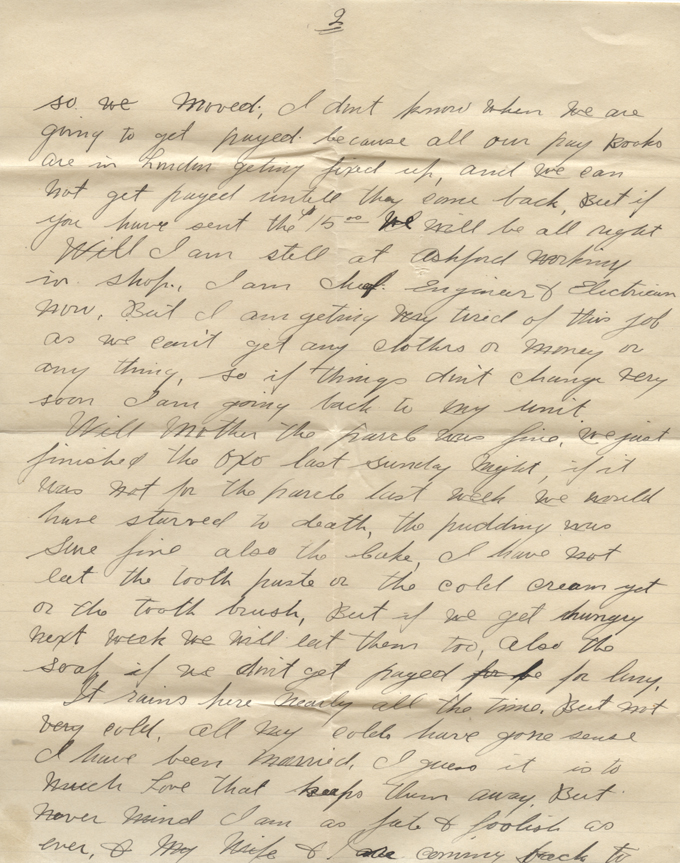 2
so we moved, I dont know when we are
going to get payed because all our pay Books
are in London geting fixed up, and we can
not get payed untill they come back, But if
you have sent the $15.00 we will be all right
Well I am still at Ashford working
in shop, I am chief Engineer & Electrician
now, But I am geting very tired of this job
as we can't get any clothes or money or
any thing, so if things dont change very
soon I am going back to my unit
Well Mother the parcle was fine, we just
finished the Oxo last Sunday night, if it
was not for the parcle last week we would
have starved to death, the pudding was
sure fine also the Cake, I have not
eat the tooth paste or the cold cream yet
or the tooth brush, But if we get hungry
next week we will eat them too, also the
soap if we dont get payed for
It rains here nearly all the time, But not
very cold, all my colds have gone sense
I have been married, I guess it is to
much Love that keeps them away, But
never mind I am as fat & foolish as
ever, & My Wife & I are comming back to